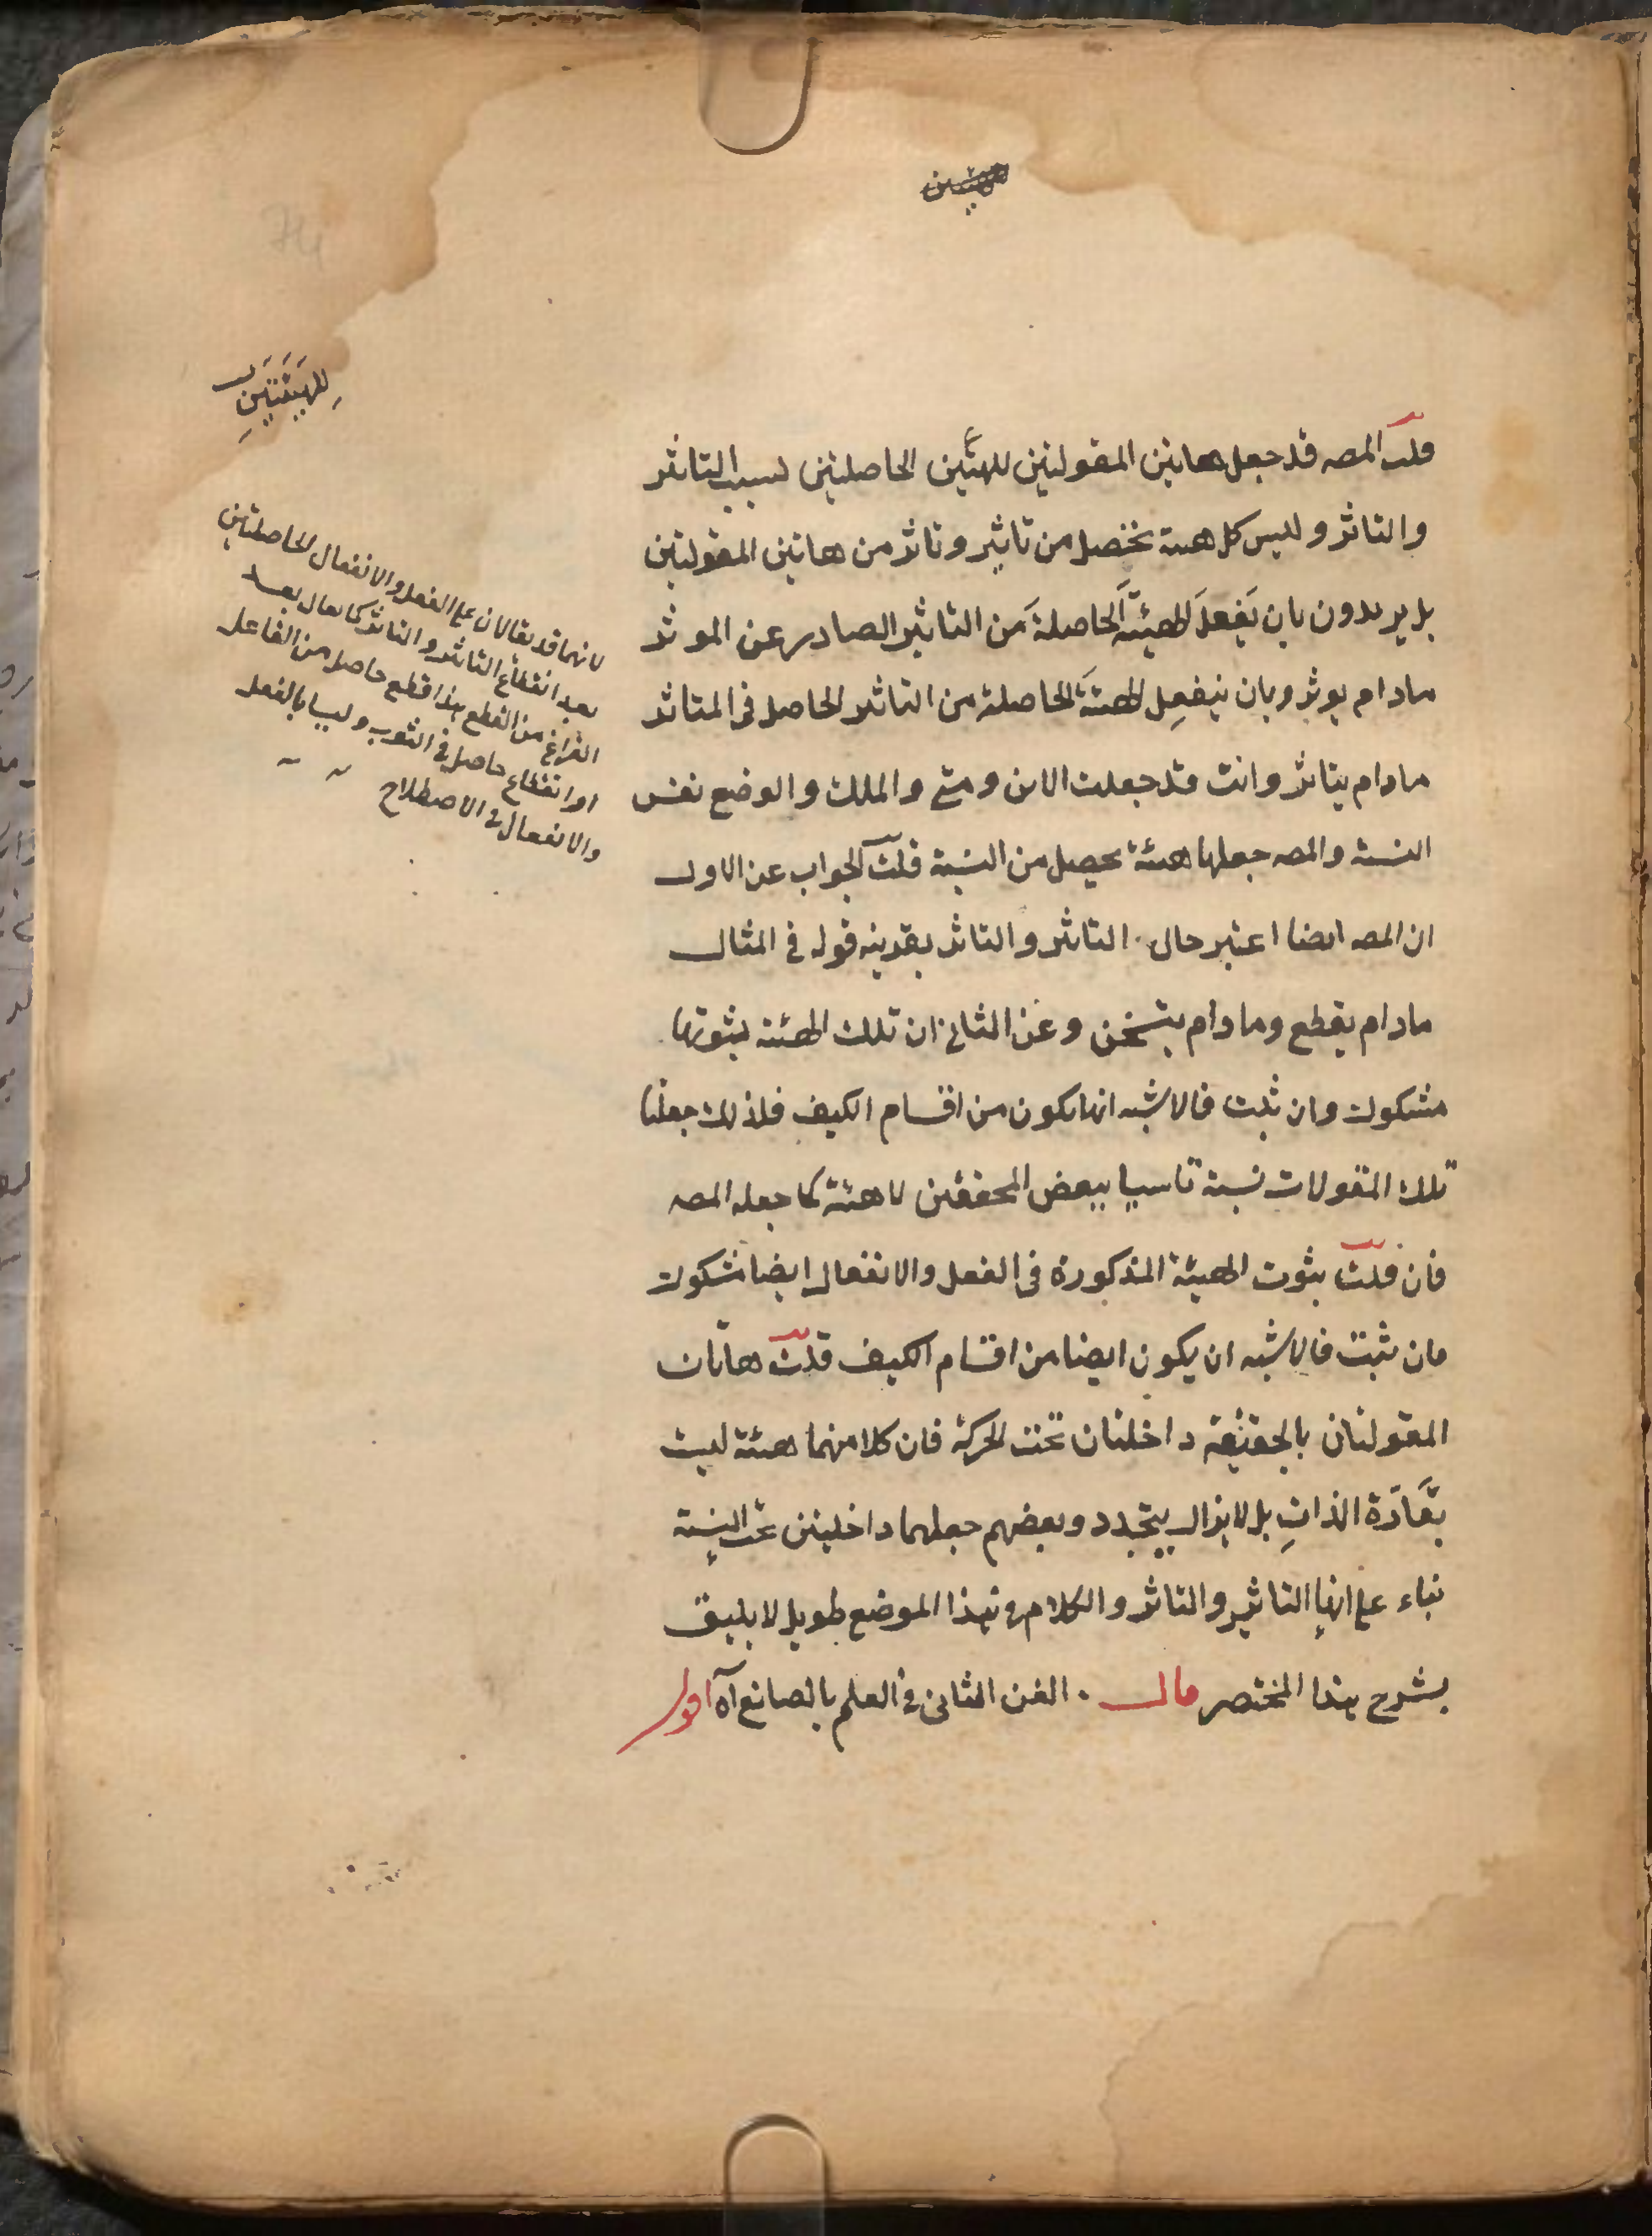 للهيئتين
قلت المصه قد جعل هاتين المقولتين للهئتين الحاصلتين بسبب التاثير
والتاثر وليس كل هيئة تحصل من تاثير وتاثر من هاتين المقولتين
بل يريدون بان يَفعِلَ الهيئةَ الحاصلةَ من التاثير الصادر عن الموثر
مادام يوثر وبان ينفعِل الهيئةَ الحاصلة من التاثير الحاصل في المتاثر
مادام يتاثر وانت قد جعلت الاين ومتى والملك والوضع نفس
النسبة والمصه جعلها هيئة يحصل من النسبة قلت الجواب عن الاول
ان المصه ايضا اعتبر حال التاثير والتاثر بقرينه قوله في المثال
مادام يقطع ومادام يتسخن وعن الثاني ان تلك الهيئة بثوتها
مشكوك وان ثبت فالاشبه انها يكون من اقسام الكيف فلذلك جعلنا
تلك المقولات نسبة تاسيا ببعض المحققين لا هيئة كما جعله المصه
فان قلت بثوت الهيئة المذكورة في الفعل والانفعال ايضا مشكوك
فان ثبت فالاشبه ان يكون ايضا من اقسام الكيف قلت هاتان
المقولتان بالحقيقة داخلتان تحت الحركة فان كلا منهما هيئة ليست
بقَارّة الذاتِ بل لا يزال يتجدد وبعضهم جعلهما داخلتين تحت النسبة
بناء على انها التاثير والتاثر والكلام في هذا الموضع طويل لا يليق
بشرح هذا المختصر قال . الفن الثاني في العلم بالصانع آه اقول
لانهما قد يقالان على الفعل والانفعال الحاصلتين
بعد انقطاع التاثير والتاثر كما يقال بعد
الفراغ من القطع هذا قطع حاصل من الفاعل
او انقطاع حاصل في الثوب وليسا بالفعل
والانفعال في الاصطلاح